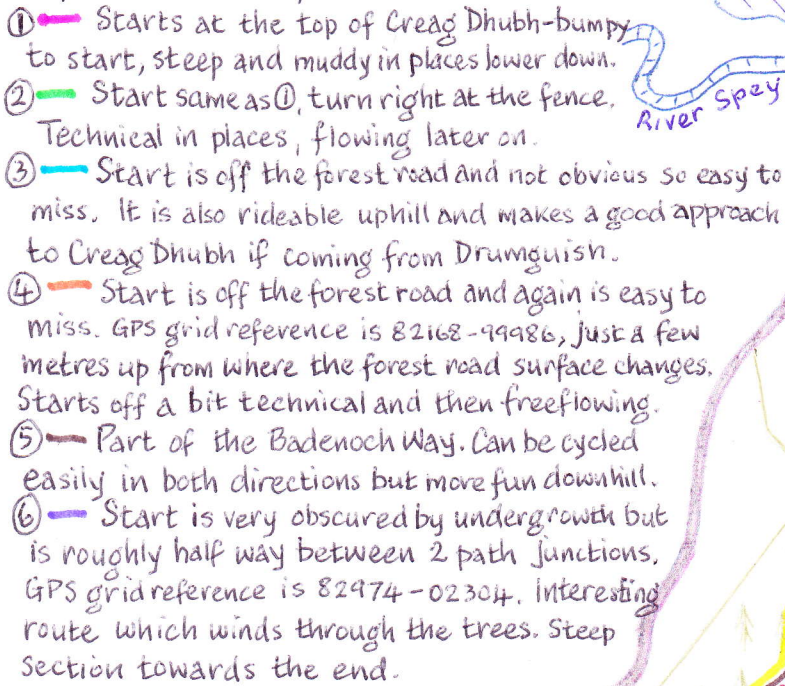 ① Starts at the top of Creag Dhubh-bumpy
to start, steep and muddy in places lower down.
② Start same as ①, turn right at the fence.
Technical in places, flowing later on.
River Spey
③ Start is off the forest road and not obvious so easy to
miss. It is also rideable uphill and makes a good approach
to Creag Dhubh if coming from Drumguish.
④ Start is off the forest road and again is easy to
miss. GPS grid reference is 82168-99986, just a few
metres up from where the forest road surface changes.
Starts off a bit technical and then freeflowing.
⑤ Part of the Badenoch Way. Can be cycled
easily in both directions but more fun downhill.
⑥ Start is very obscured by undergrowth but
is roughly half way between 2 path junctions.
GPS grid reference is 82974-02304. Interesting
route which winds through the trees. Steep
section towards the end.